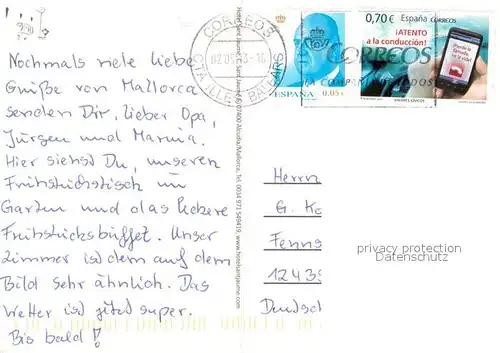 Nochmals viele liebe
Grüße von Mallorca
senden Dir, lieber Opa,
Jürgen und
Hier siehst Du, unseren
Frühstückstisch im
Garten und das leckere
Frühstücksbüffet. Unser
Zimmer ist dem auf dem
Bild sehr ähnlich. Das
Wetter ist jetzt super.
Bis bald!
CORREOS
BALEARS
ESPAÑA
0,05€
0,70 €
España
CORREOS
¡ATENTO
a la conducción!
CORREOS
Herrn
G. Ko
Fenns
12439
Deutsch
privacy protection
Datenschutz